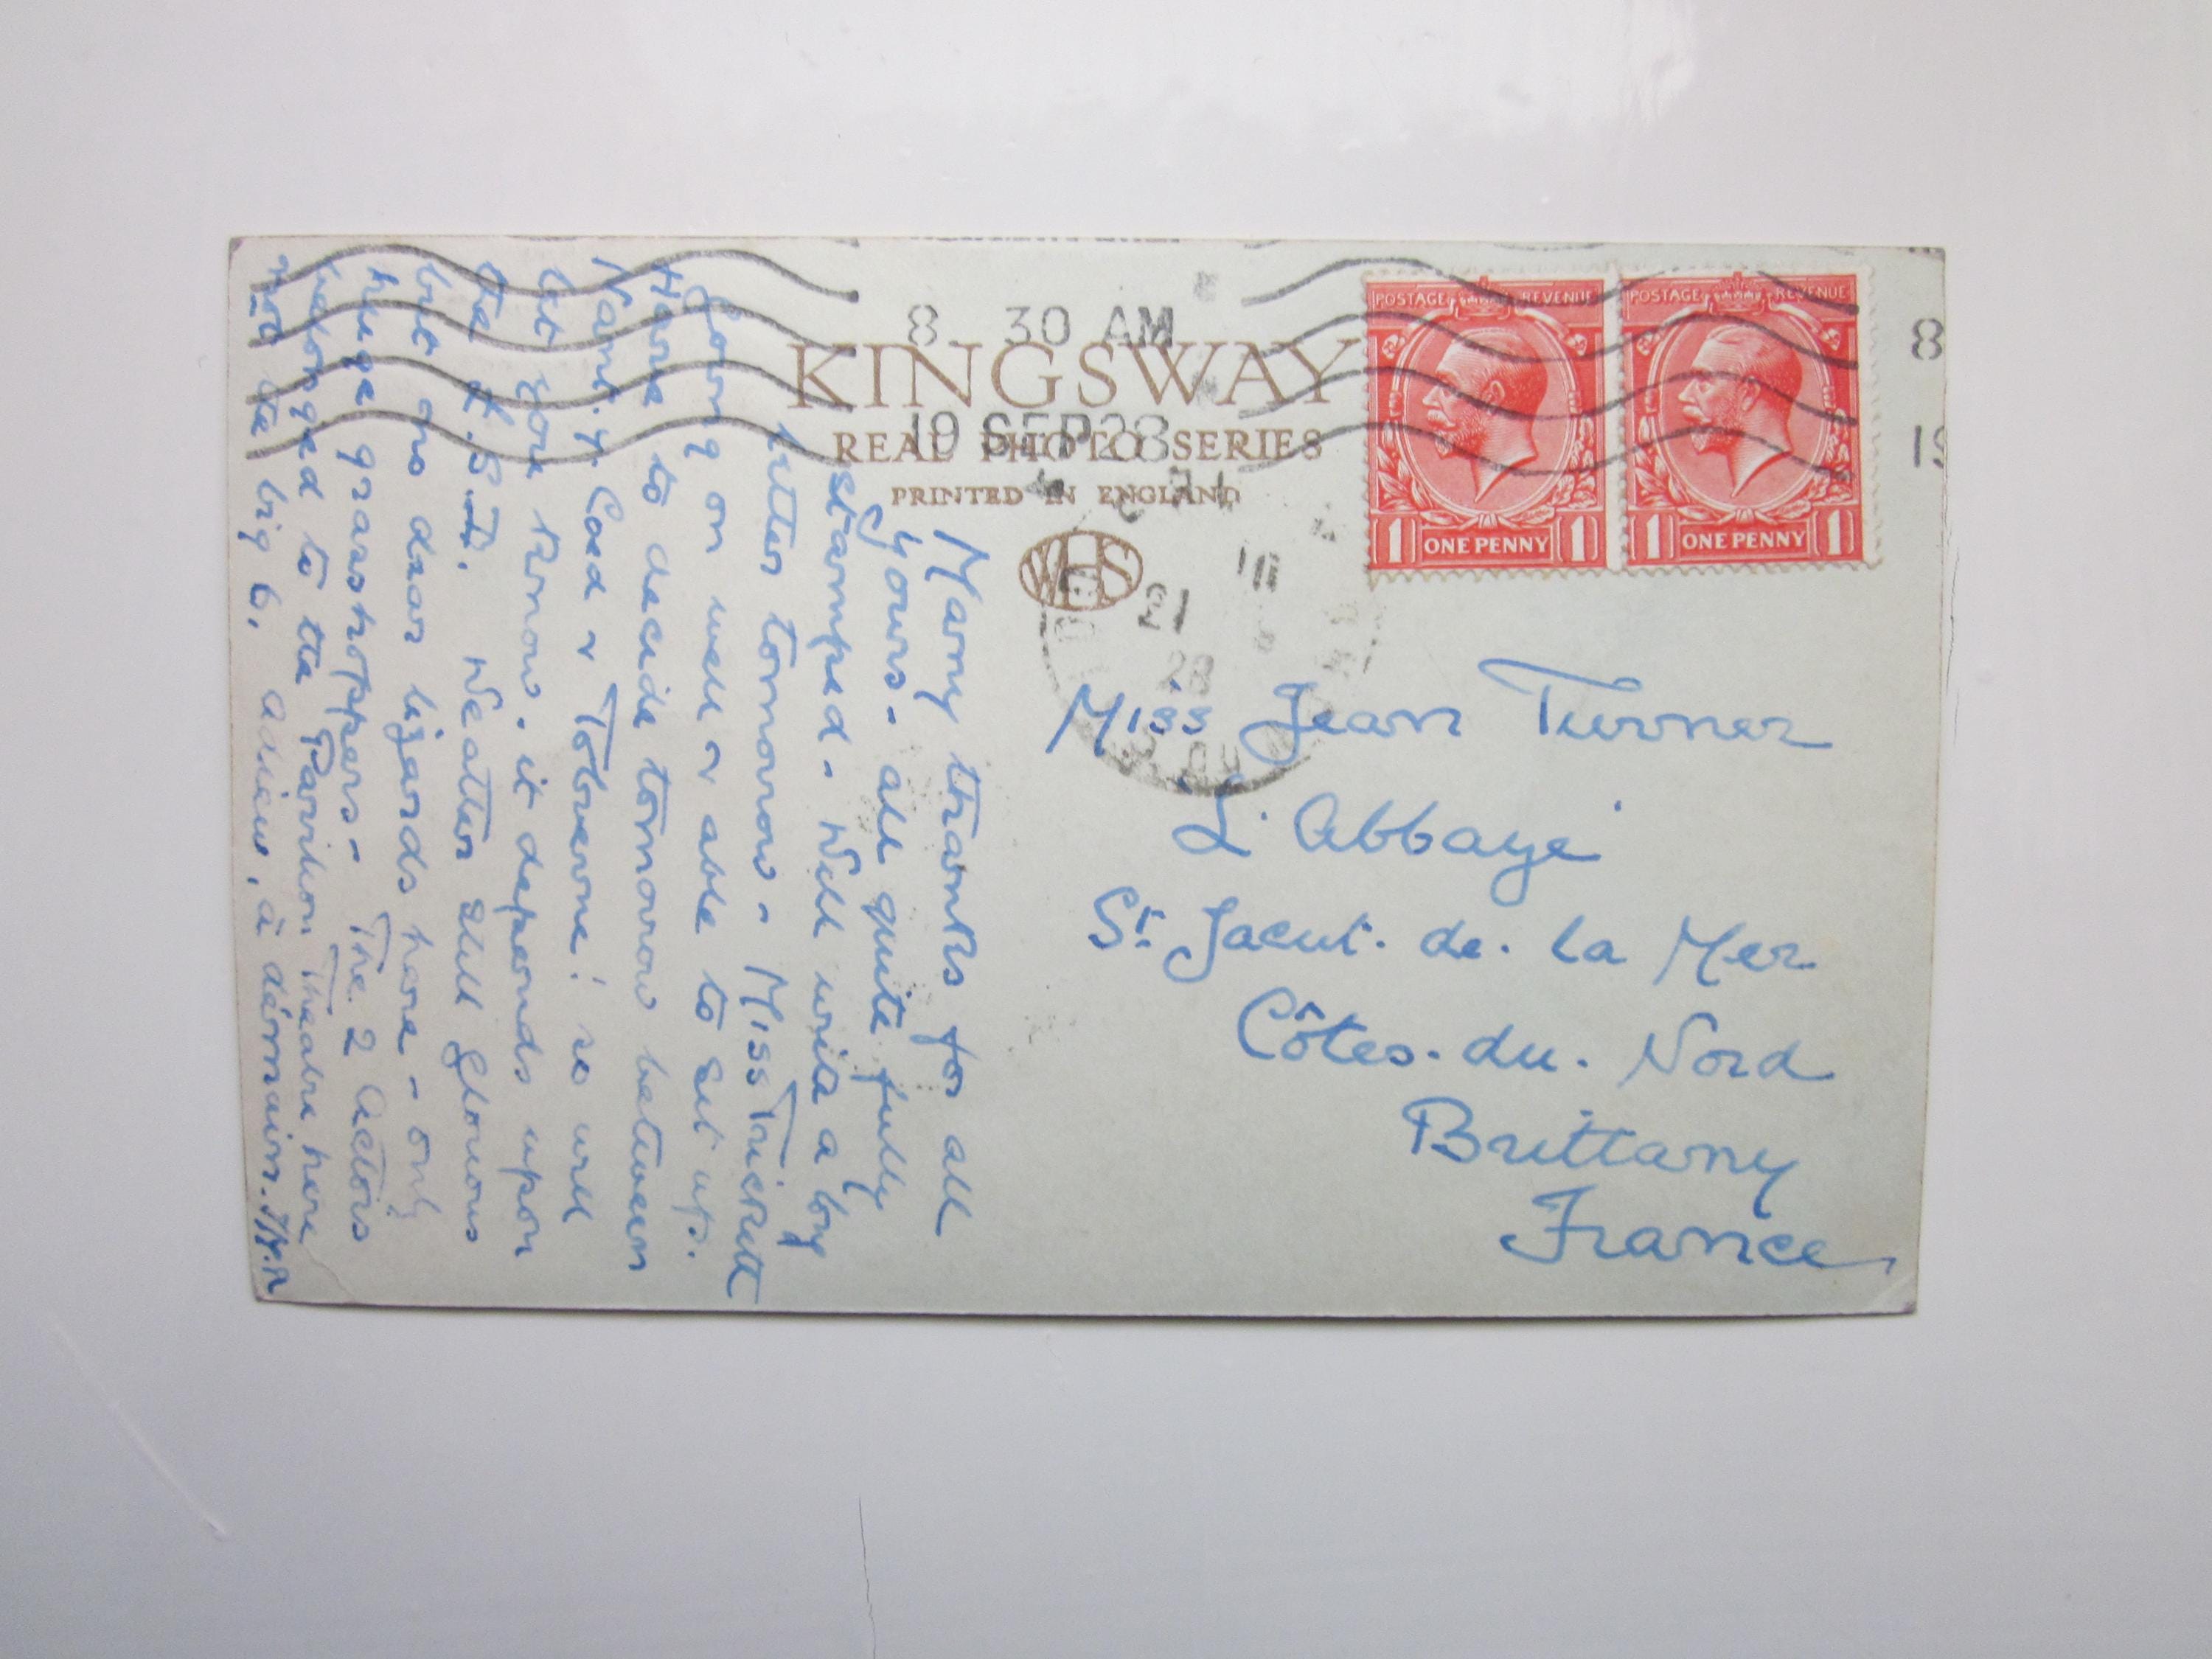 8 30 AM
19 SEP 28
KINGSWAY
REAL PHOTO SERIES
PRINTED IN ENGLAND
WHS
POSTAGE REVENUE
1 ONE PENNY 1
POSTAGE REVENUE
1 ONE PENNY 1
8
19
21
28
Miss Jean Turner
L'Abbaye
St. Jacut. de. la Mer
Côtes. du. Nord
Brittany
France
Many thanks for all
yours - all quite fully
stamped - Will write a long
letter tomorrow - Miss Trickett
going on well & able to sit up.
Have to decide tomorrow between
Coed & Toberone! so will
let you know. it depends upon
the Weather still glorious
but no dear lizards here - only
huge grasshoppers - The 2 actors
belonged to the Pavilion Theatre here
not the big 6. adieu, à demain.